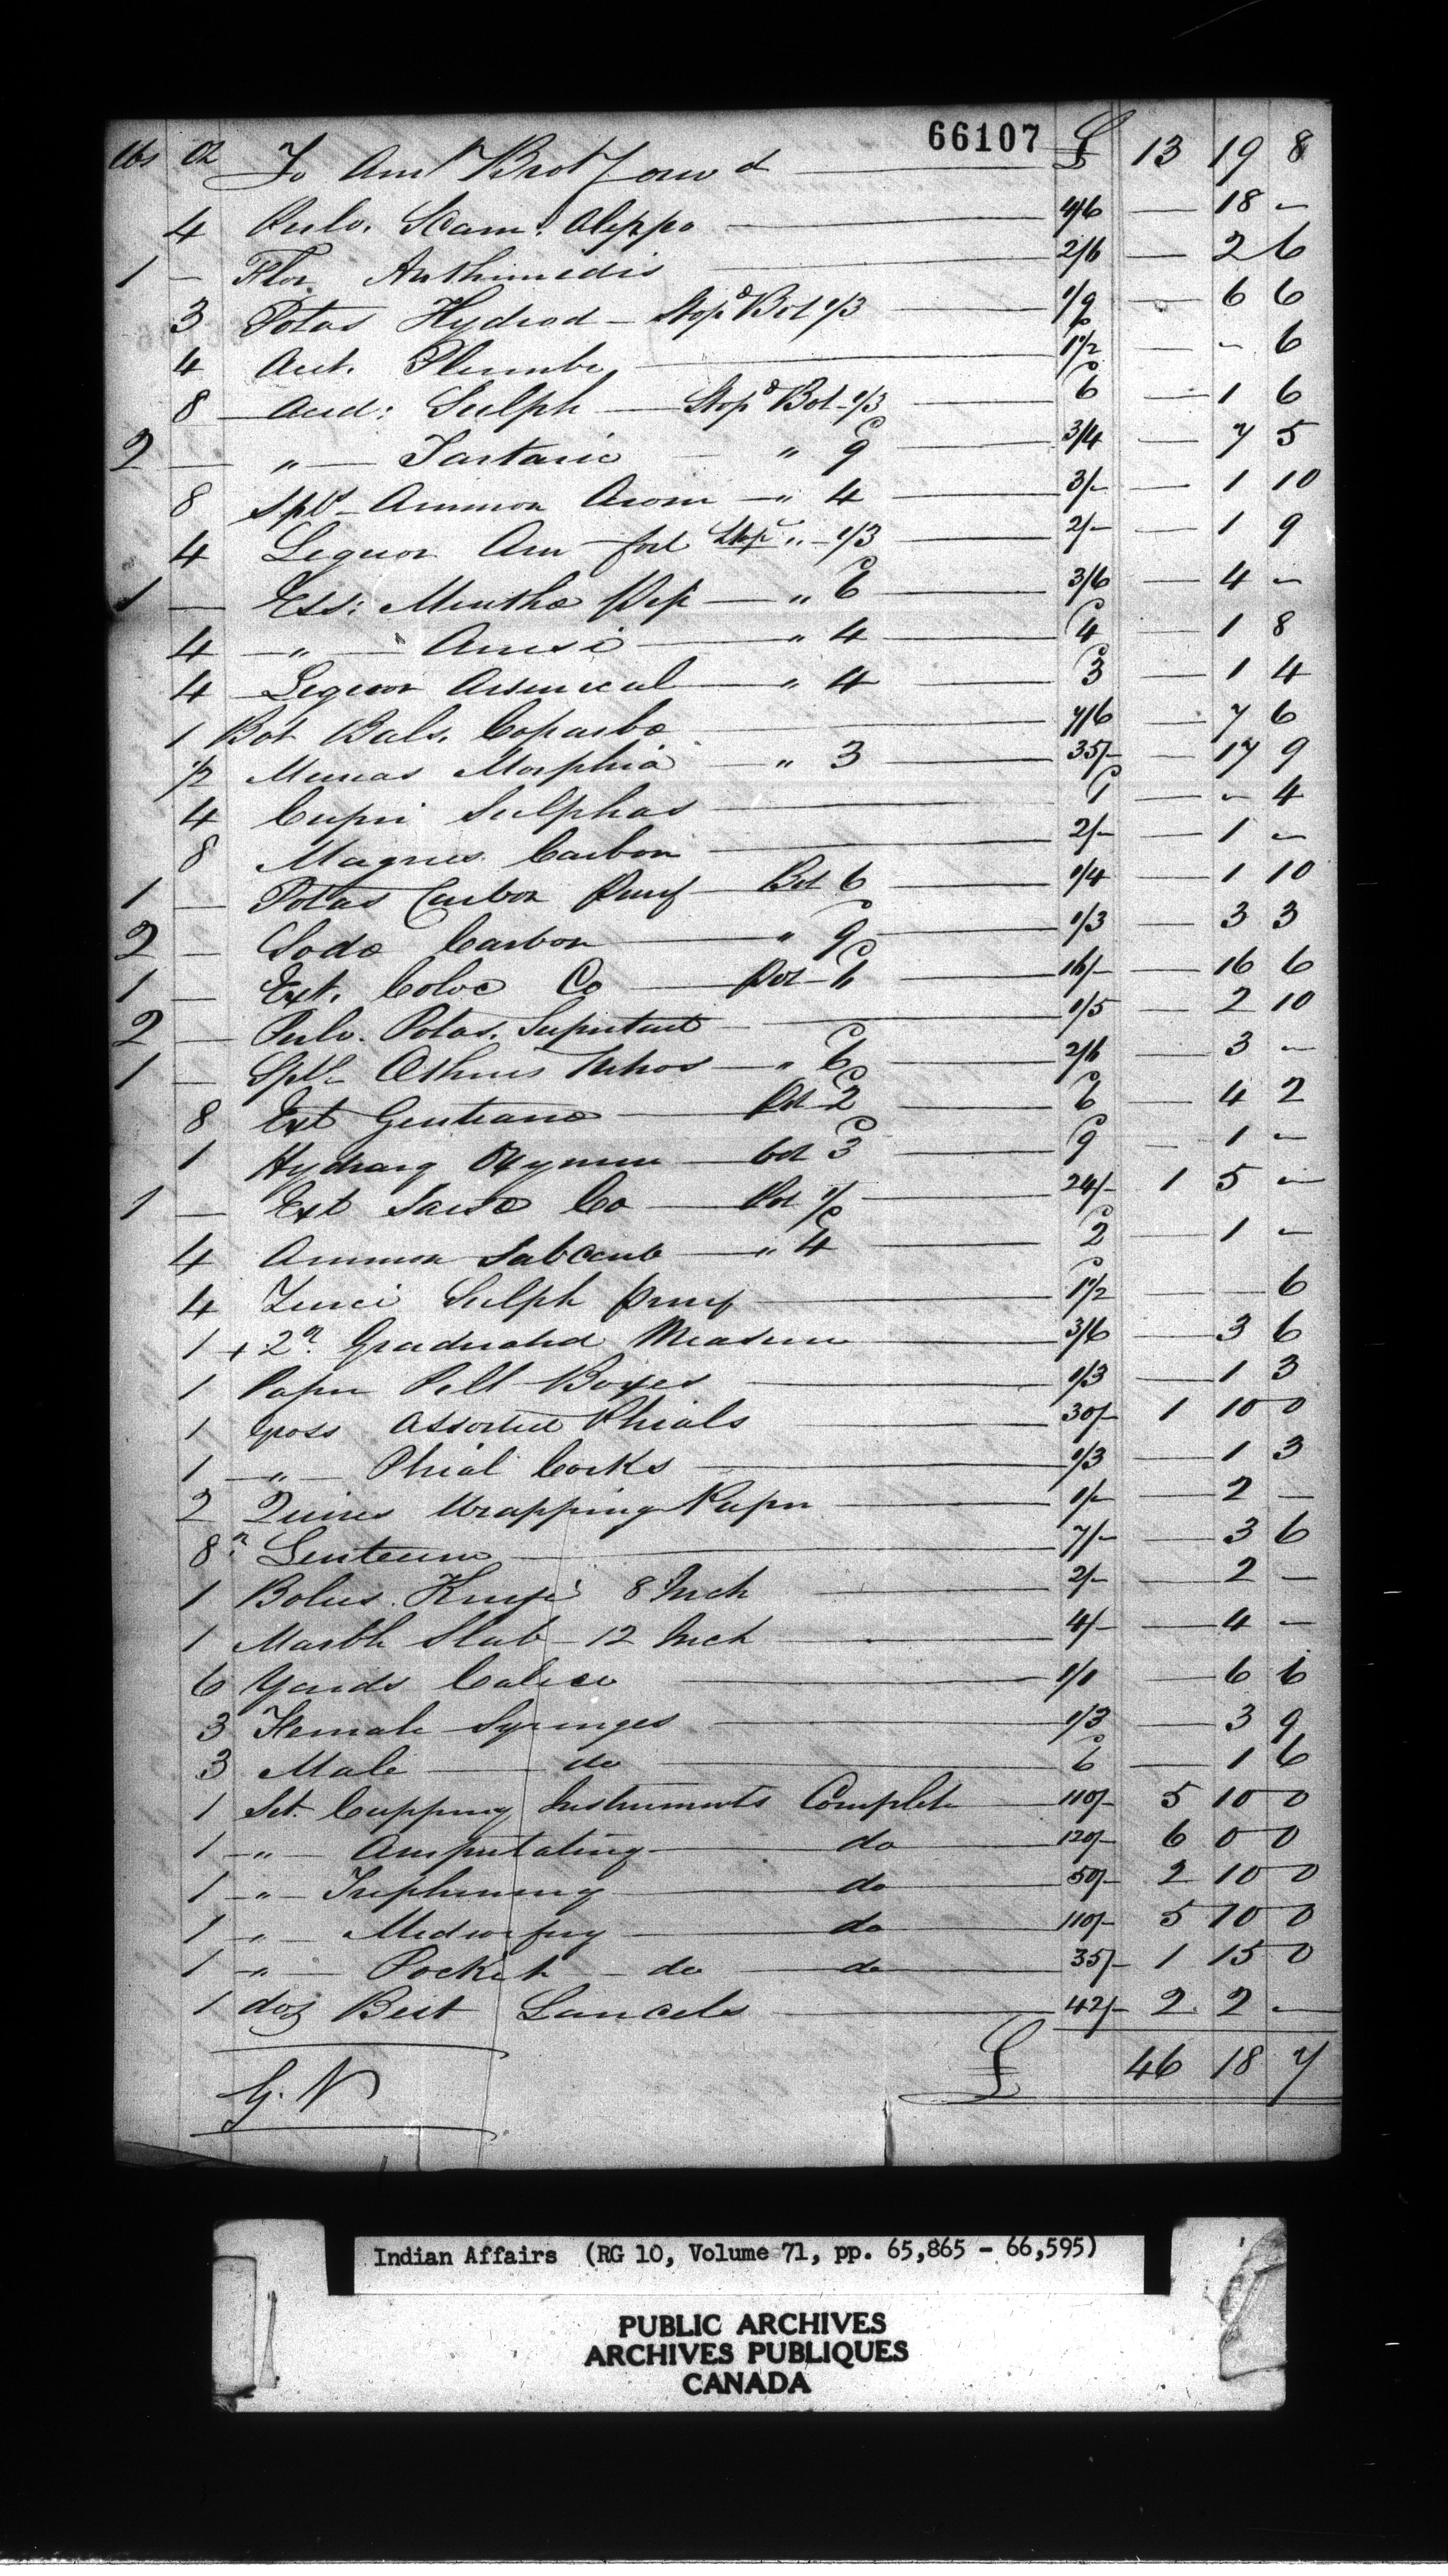 66107
lbs oz To Amt Brot Forwd £ 13 19 8
4 Pulv. Scam: Aleppo 4/6 — 18 -
1 — Flor. Anthimedis 2/6 — 2 6
3 Potas Hydriod - Stopd Bot 1/3 1/9 — 6 6
4 Acet. Plumbi 1 1/2 — - 6
8 Acid: Sulph — Stopd Bot - 1/3 6 — 1 6
2 — " — Tartaric — " 9 3/4 — 7 5
8 Spts - Ammon Arom — " 4 3/- — 1 10
4 Liquor Am fort Stopd " - 1/3 2/- — 1 9
1 — Ess: Menthæ Pip — " 6 3/6 — 4 -
4 — " — Anisi — " 4 4 — 1 8
4 Liquor Arsenical — " 4 3 — 1 4
1 Bot Bals. Copaibæ 7/6 — 7 6
1/2 Murias Morphia — " 3 35/- — 17 9
4 Cupri Sulphas 1 — - 4
8 Magnes Carbon 2/- — 1 -
1 — Potas Carbon Purif — Bot 6 1/4 — 1 10
2 — Sodæ Carbon — " 9 1/3 — 3 3
1 — Ext. Coloc Co — Pot - 6 16/- — 16 6
2 — Pulv. Potas. Supertart 1/5 — 2 10
1 — Spts Ætheris Nitros — " 6 2/6 — 3 -
8 Ext Gentianæ — Pot 2 6 — 4 2
1 Hydrarg Oxymur — bot 3 9 — 1 -
1 — Ext Sarsæ Co — Pot 1/ 24/- 1 5 -
4 Ammon Subcarb — " 4 2 — 1 -
4 Zinci Sulph Purif 1 1/2 — — 6
1 + 2 oz. Graduated Measure 3/6 — 3 6
1 Paper Pill Boxes 1/3 — 1 3
1 gross Assorted Phials 30/- 1 10 0
1 — " — Phial Corks 1/3 — 1 3
2 Quires Wrapping Paper 1/- — 2 —
8 oz. Linteum 7/- — 3 6
1 Bolus Knife 8 Inch 2/- — 2 —
1 Marble Slab - 12 Inch 4/- — 4 -
6 Yards Calico 1/1 — 6 6
3 Female Syringes 1/3 — 3 9
3 Male — do 6 — 1 6
1 Set Cupping Instruments Complete 110/- 5 10 0
1 — " — Amputating — do 120/- 6 0 0
1 — " — Trephining — do 50/- 2 10 0
1 — " — Midwifery — do 110/- 5 10 0
1 — " — Pocket — do — do 35/- 1 15 0
1 doz Best Lancets 42/- 2 2 —
£ 46 18 7
G. N
Indian Affairs (RG 10, Volume 71, pp. 65,865 - 66,595)
PUBLIC ARCHIVES
ARCHIVES PUBLIQUES
CANADA